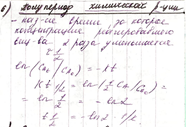 6) Полупериод химической р-ции
- наз-ие время за которое
концентрация реагировавшего
в-ва в 2 раза уменьшается
t 1/2
ln(Ca/Ca₀) = -kt
Kt 1/2 = ln(1/2 Ca₀/Ca₀) =
= ln 1/2 = -ln2
t 1/2 = -ln2 · 1/k